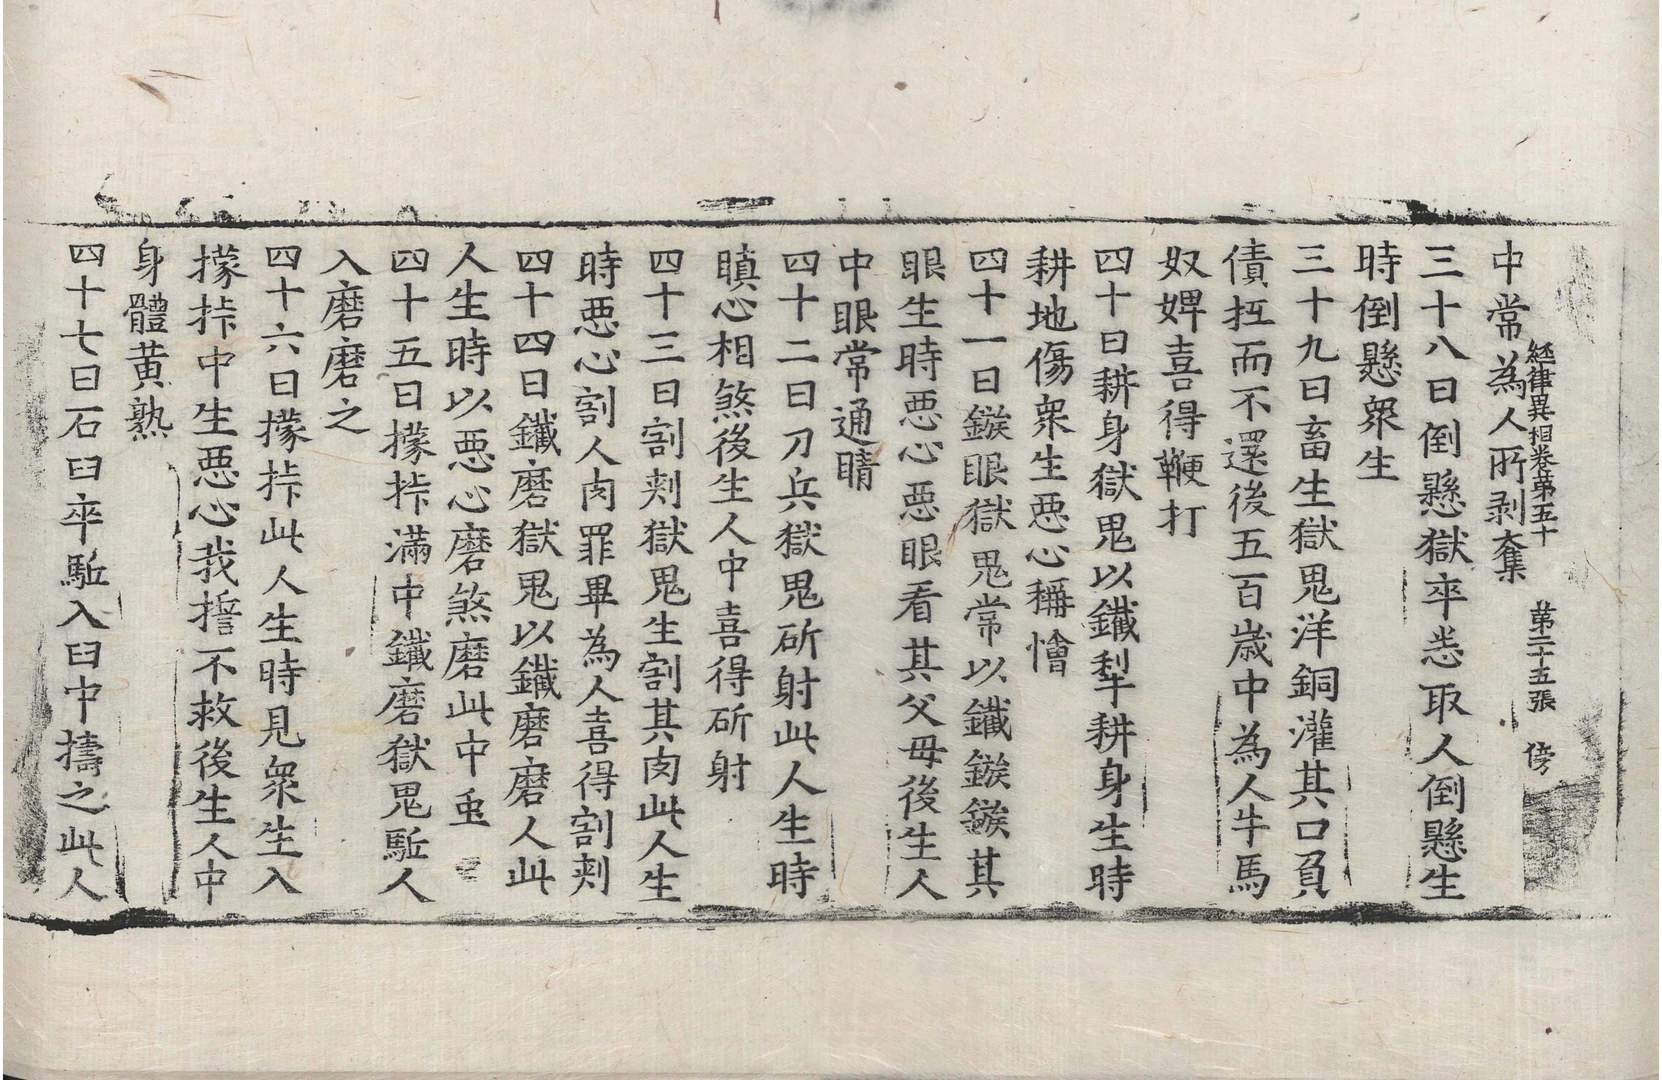 經律異相卷第五十 第二十五張 傍
中常為人所剥奪
三十八曰倒懸獄卒恙取人倒懸生
時倒懸衆生
三十九曰畜生獄鬼洋銅灌其口負
債抂而不還後五百歲中為人牛馬
奴婢喜得鞭打
四十曰耕身獄鬼以鐵犁耕身生時
耕地傷衆生惡心穪憎
四十一曰鏃眼獄鬼常以鐵鏃鏃其
眼生時惡心惡眼看其父母後生人
中眼常通睛
四十二曰刀兵獄鬼斫射此人生時
瞋心相煞後生人中喜得斫射
四十三曰割剥獄鬼生割其肉此人生
時惡心割人肉罪畢為人喜得割剥
四十四曰鐵磨獄鬼以鐵磨磨人此
人生時以惡心磨煞磨此中虫
四十五曰㩚㧊滿中鐵磨獄鬼駈人
入磨磨之
四十六曰㩚㧊此人生時見衆生入
㩚㧊中生惡心我擔不救後生人中
身體黄熟
四十七曰石臼卒駈入臼中擣之此人